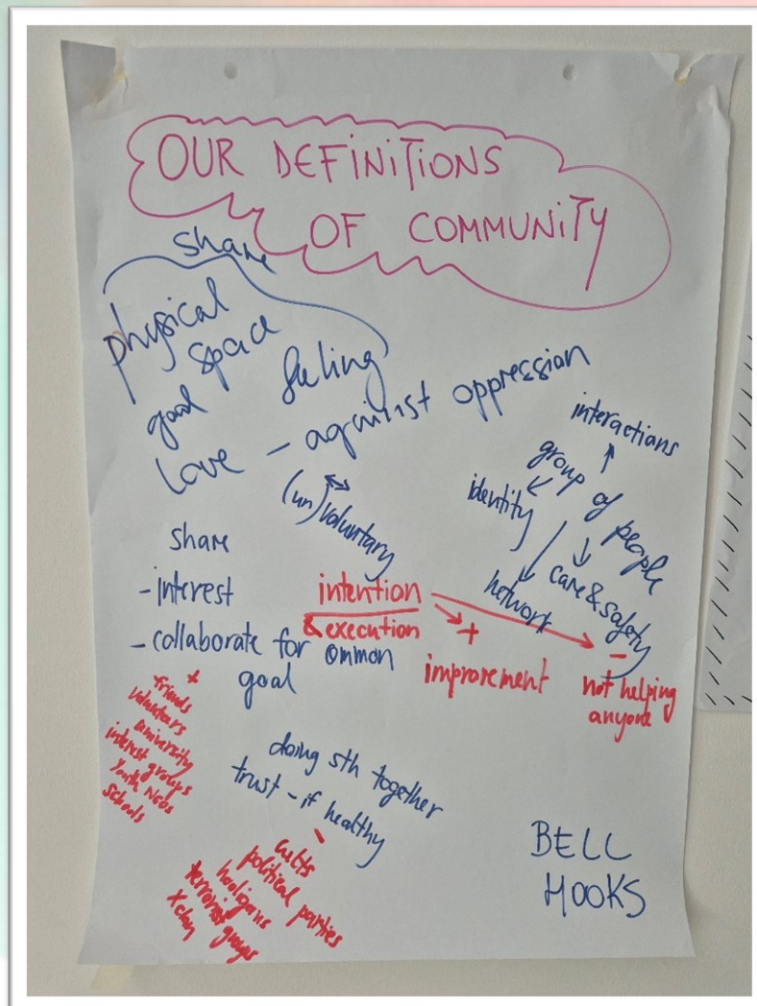 OUR DEFINITIONS
OF COMMUNITY
share
physical
space
good feeling
love - against oppression
(un)voluntary
interactions
group of people
identity
network
care & safety
share
- interest
- collaborate for ommon
goal
intention
& execution
+
improvement
-
not helping
anyone
+
friends
university
interest groups
Youth NGOs
schools
doing sth together
trust - if healthy
-
cults
political parties
hooligans
terrorist groups
BELL
HOOKS